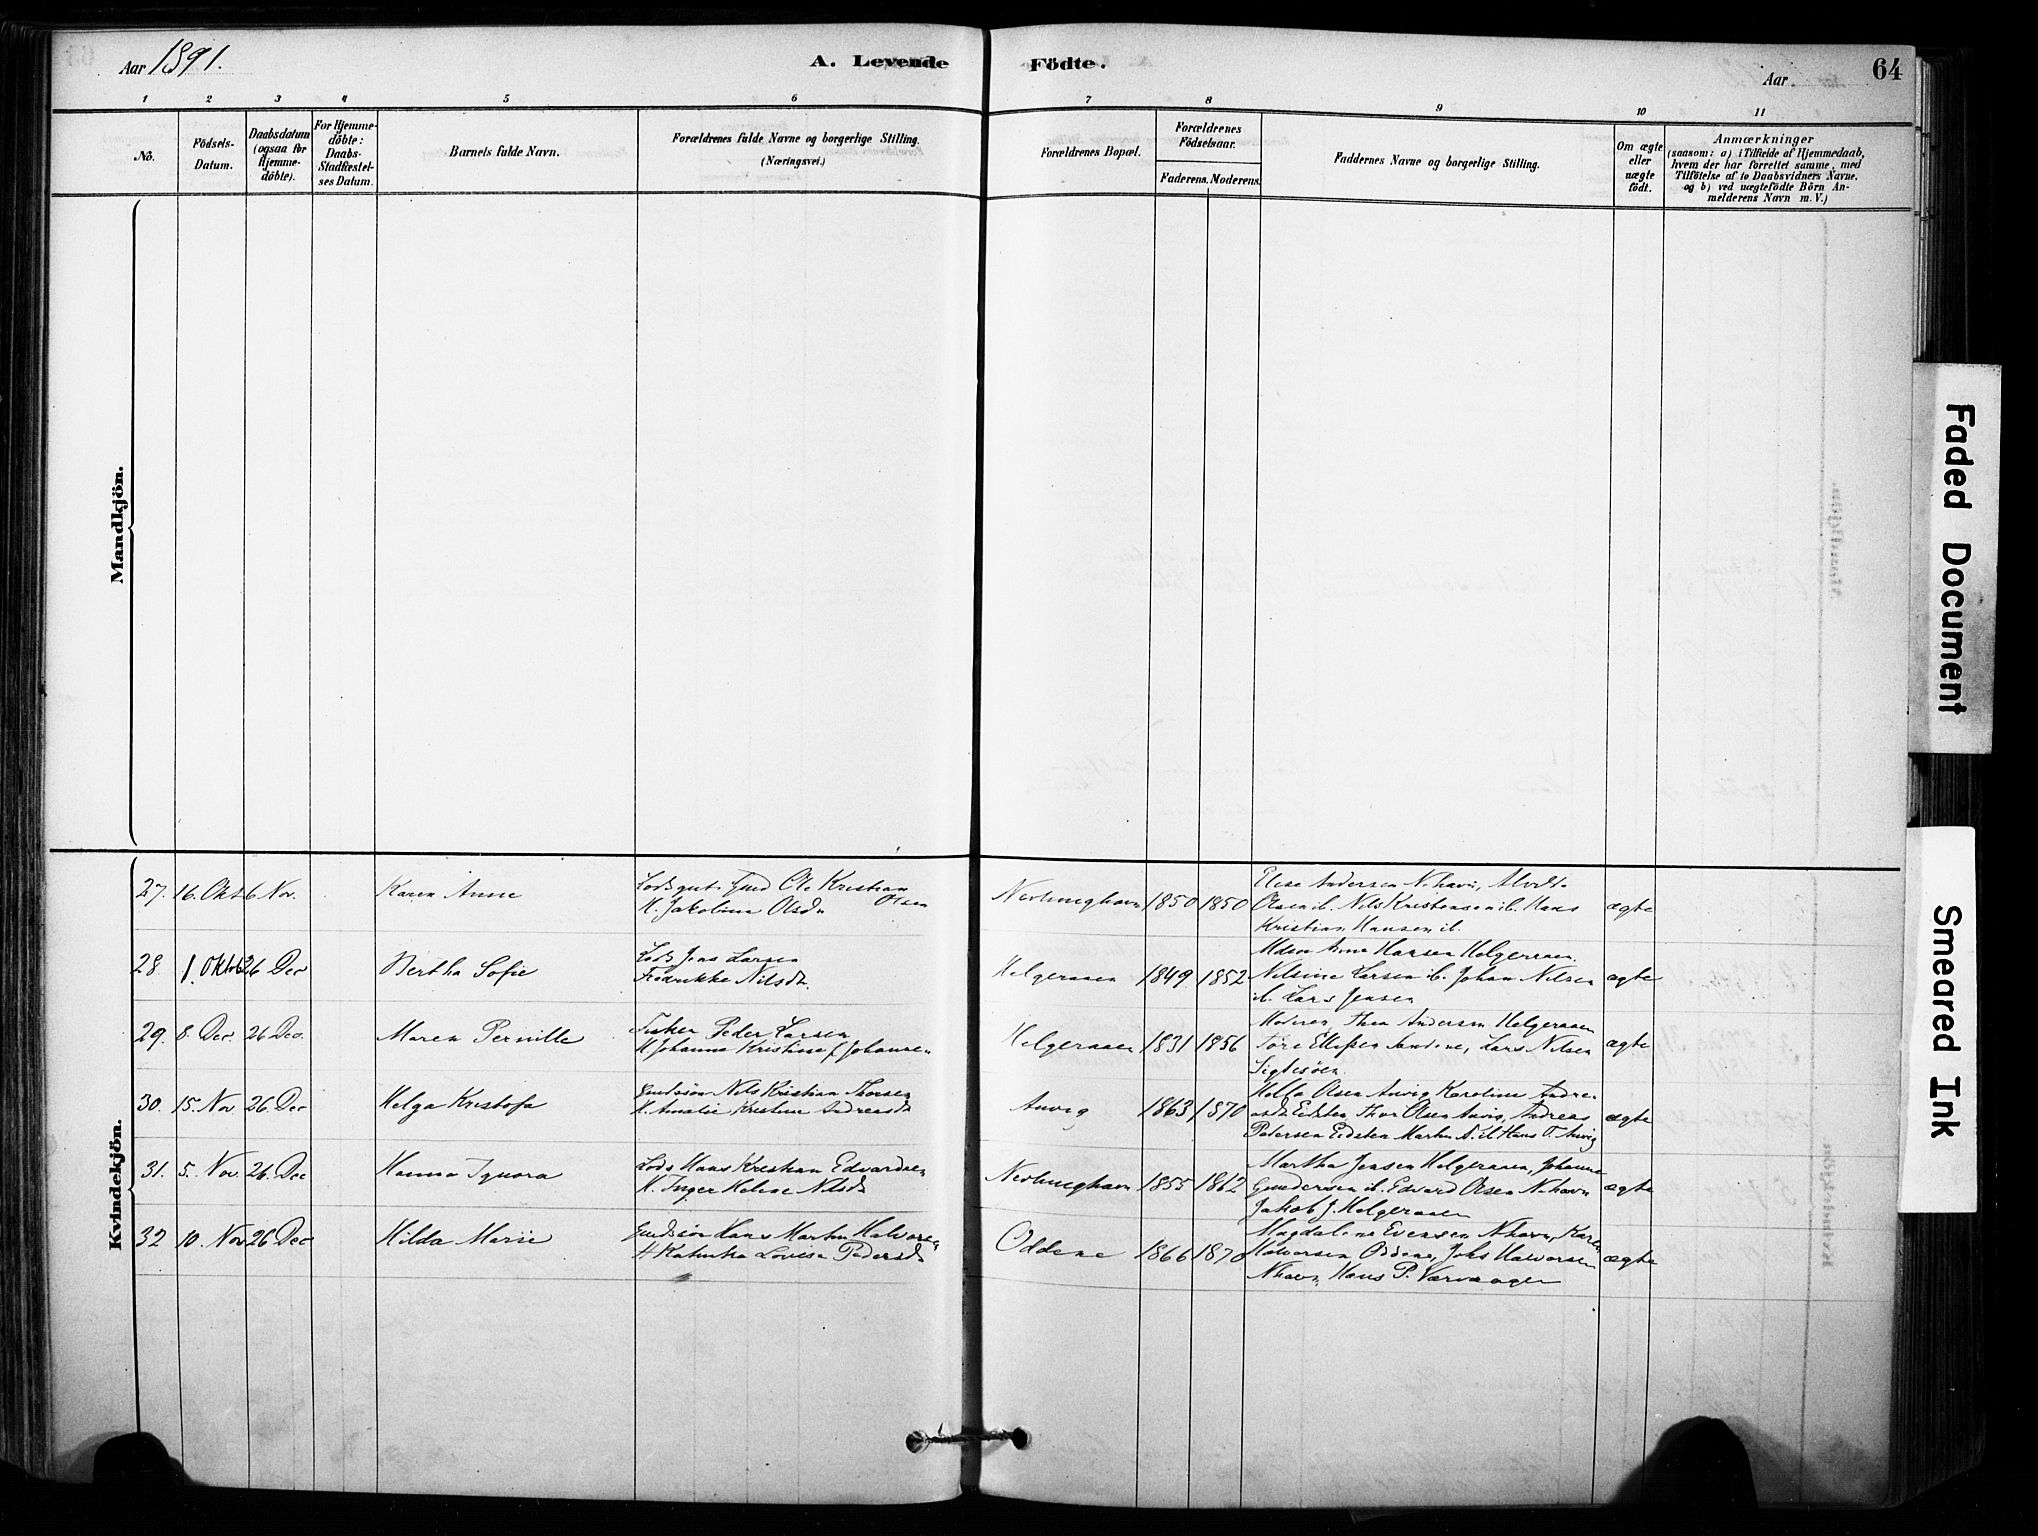 Aar 1891.
A. Levende
Födte.
Aar
64
1 2 3 4 5 6 7 8 9 10 11
No.
Födsels-
Datum.
Daabsdatum
(ogsaa for
Hjemme-
döbte).
For Hjemme-
döbte:
Daabs-
Stadfæstel-
ses Datum.
Barnets fulde Navn.
Forældrenes fulde Navne og borgerlige Stilling.
(Næringsvei.)
Forældrenes Bopæl.
Forældrenes
Födselsaar.
Faderens. Moderens.
Faddernes Navne og borgerlige Stilling.
Om ægte
eller
uægte
födt.
Anmærkninger
(saasom: a) i Tilfælde af Hjemmedaab,
hvem der har forrettet samme, med
Tilföielse af to Daabsvidners Navne.
og b) ved uægtefödte Börn An-
melderens Navn m. V.)
Mandkjön.
Kvindekjön.
27. 16. Okt 6 Nov.
Karen Anne
Ole Kristian
Olsen
H. Jakobine Olsdr
Nevlunghavn 1850 1850
Elese Andersen N.havn,
Olsen ib. Nils Kristensen ib. Hans
Kristian Hansen ib.
ægte
28 1. Oktob 26 Dec
Bertha Sofie
Lods Jens Larsen
Fredrikke Nilsdr.
Helgeraaen 1849 1852
Anne Hansen Helgeraaen.
Nilsine Larsen ib. Johan Nilsen
ib. Lars Jensen
ægte
29. 8. Dec. 26 Dec.
Maren Pernille
Fisker Peder Larsen
H. Johanne Kristine f. Johanne
Helgeraaen 1831 1856
Moderen, Thea Andersen Helgeraaen
Tore Ellefsen Lars Nilsen
ægte
30. 15. Nov 26. Dec
Helga Kristofa
Nils Kristian Thorsen
H. Amalie Kristine Andreasdr
Anvig 1863 1870
Olsen Anvig Karoline Andre-
asdr Eidsten Thor Olsen Anvig, Andreas
Petersen Eidsten Hans T. Anvig
ægte
31. 5. Nov. 26. Dec
Hanna Ignora
Lods Hans Kristian Edvardsen
H. Inger Helene Nilsdr
Nevlunghavn 1855 1862
Martha Jensen Helgeraaen, Johanne
Gundersen ib. Edvard Olsen N.havn
Jakob J. Helgeraaen
ægte
32 10. Nov 26 Dec
Hilda Marie
Hans Martin Halvorsen
H Kathinka Lovise Pedersdr
Oddene 1866 1870
Magdalene Evensen Nhavn, Karen
Halvorsen Oddene, Johs Halvorsen
Nhavn, Hans P. Varvaagen
ægte
Faded Document
Smeared Ink